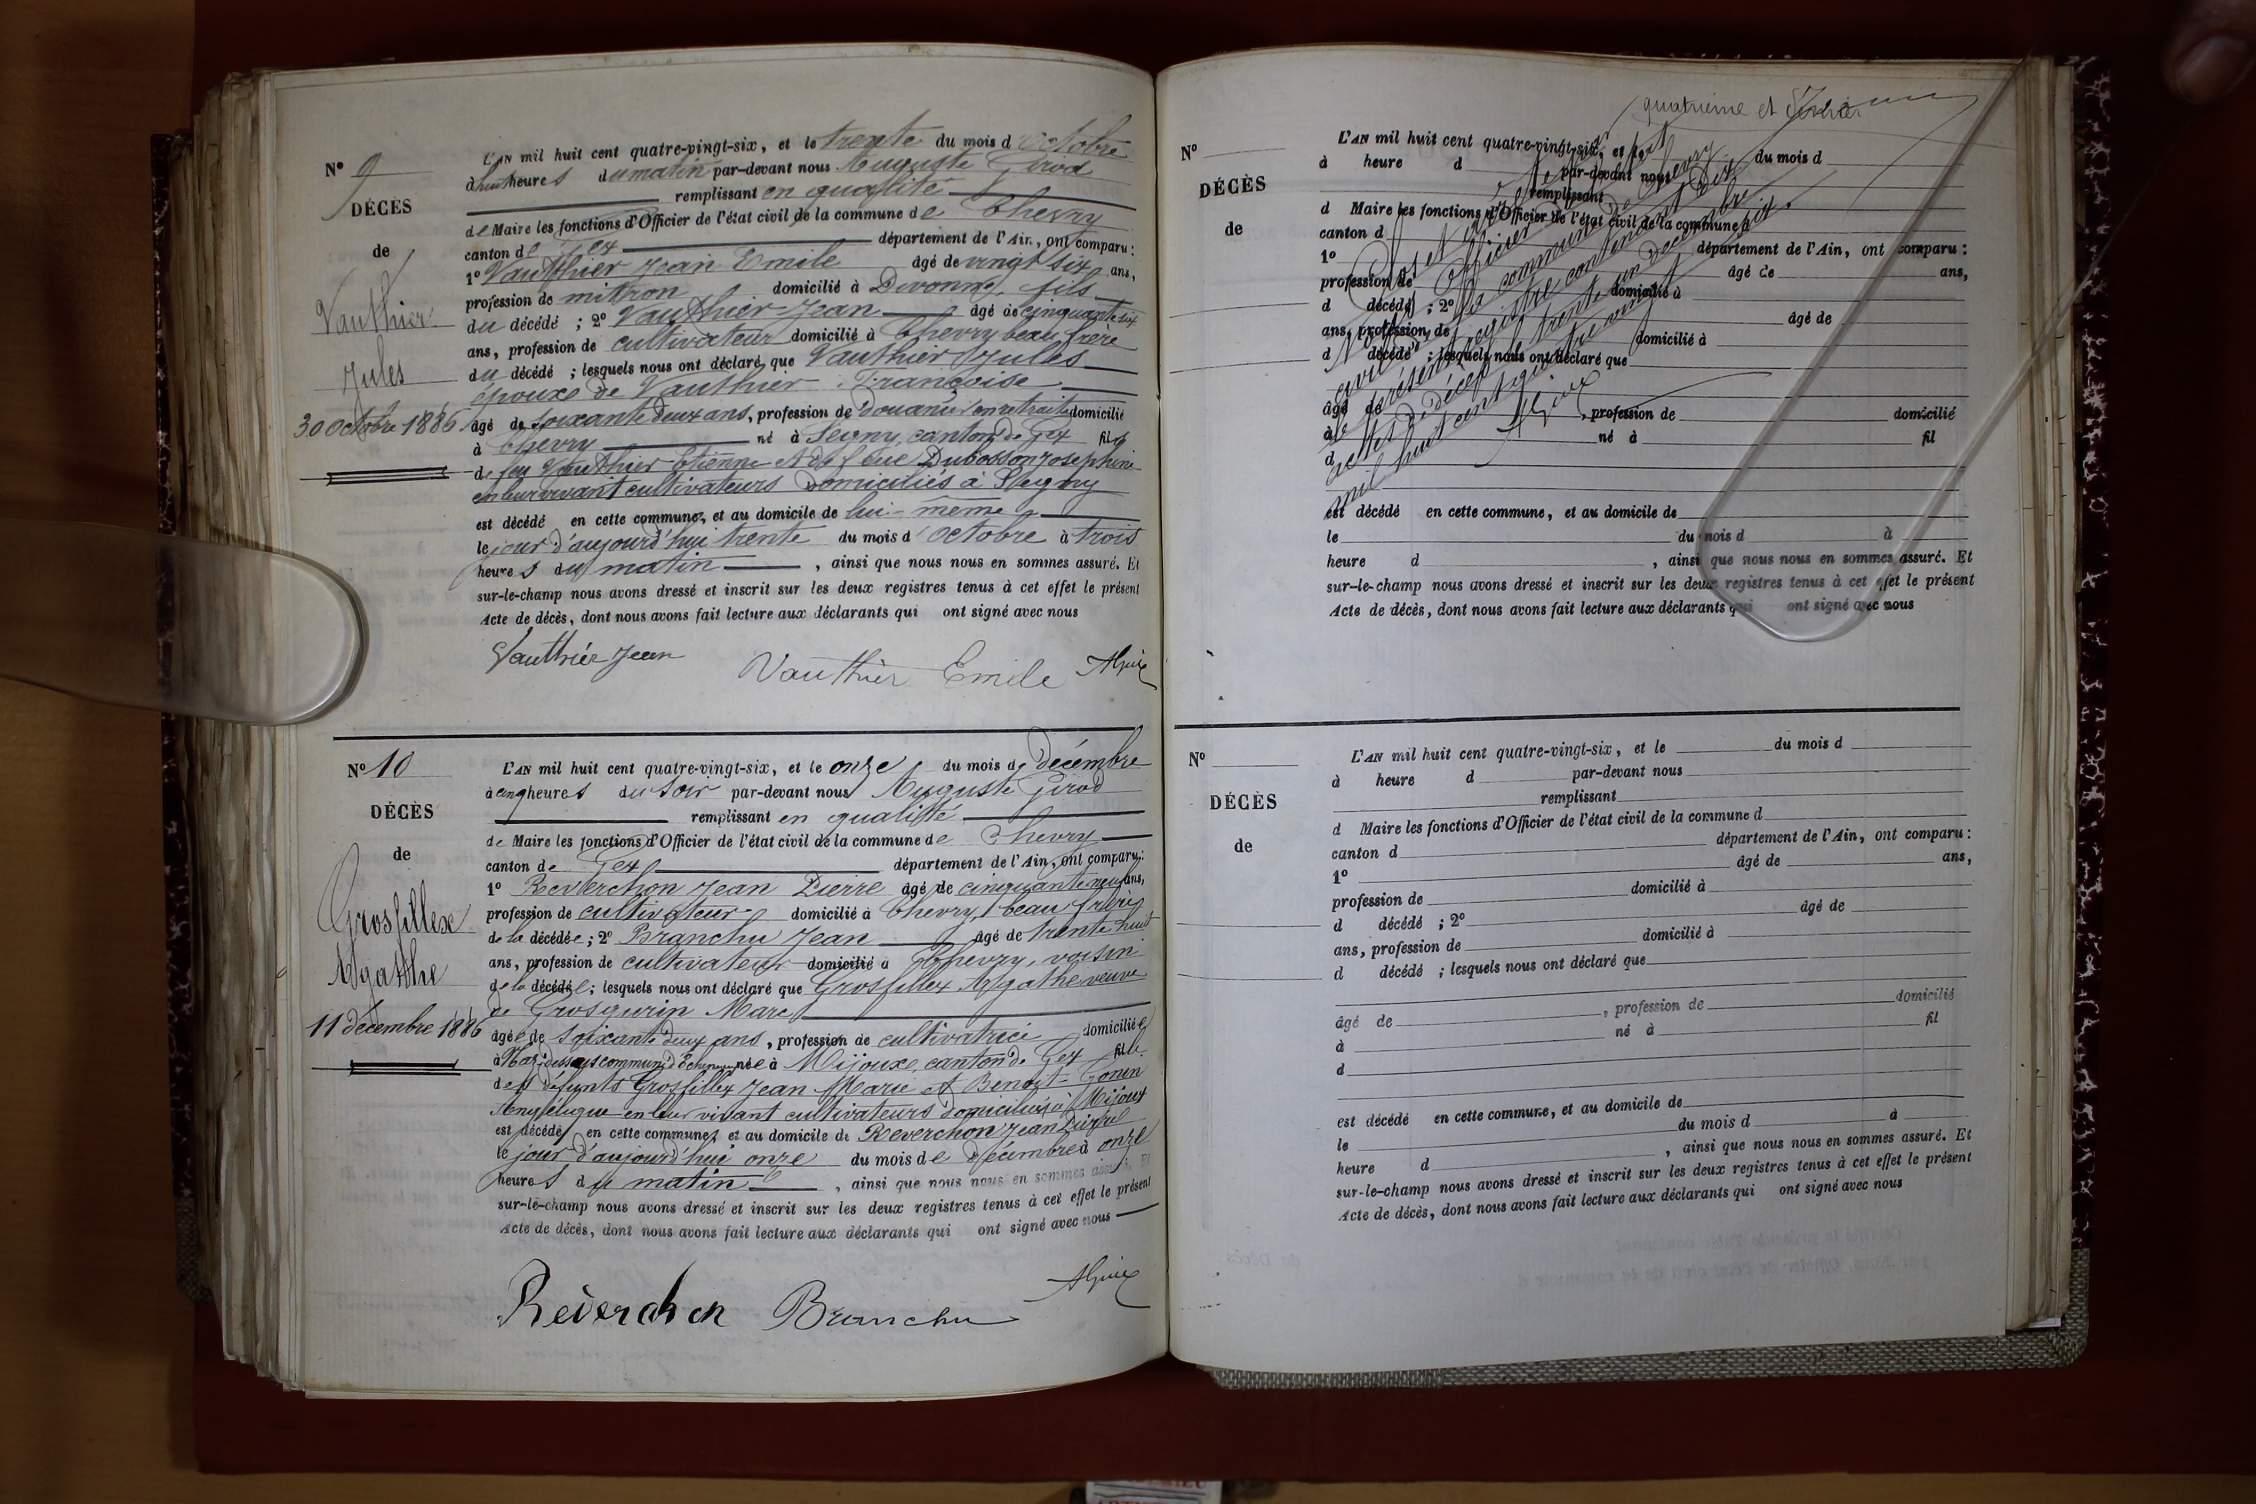 N° 9
DÉCÈS
de
Vauthier
Jules
30 Octobre 1886
L'AN mil huit cent quatre-vingt-six, et le trente du mois d'Octobre
à huit heures du matin par-devant nous Auguste Girod
remplissant en qualité
de Maire les fonctions d'Officier de l'état civil de la commune de Chevry
canton de Gex département de l'Ain, ont comparu :
1° Vauthier Jean Emile âgé de vingt six ans,
profession de mitron domicilié à Divonne, fils
du décédé ; 2° Vauthier Jean âgé de cinquante six
ans, profession de cultivateur domicilié à Chevry beau frère
du décédé ; lesquels nous ont déclaré que Vauthier Jules
époux de Vauthier Françoise
âgé de soixante deux ans, profession de douanier en retraite domicilié
à Chevry né à Segny, canton de Gex fils
de feu Vauthier Etienne et de feue Dubosson Josephine
en leur vivant cultivateurs domiciliés à Segny
est décédé en cette commune, et au domicile de lui-même
le jour d'aujourd'hui trente du mois d'Octobre à trois
heures du matin , ainsi que nous nous en sommes assuré. Et
sur-le-champ nous avons dressé et inscrit sur les deux registres tenus à cet effet le présent
Acte de décès, dont nous avons fait lecture aux déclarants qui ont signé avec nous
Vauthier Jean Vauthier Emile
N° 10
DÉCÈS
de
Grosfillex
Agathe
11 décembre 1886
L'AN mil huit cent quatre-vingt-six, et le onze du mois de décembre
à cinq heures du soir par-devant nous Auguste Girod
remplissant en qualité
de Maire les fonctions d'Officier de l'état civil de la commune de Chevry
canton de Gex département de l'Ain, ont comparu :
1° Reverchon Jean Pierre âgé de cinquante neuf ans,
profession de cultivateur domicilié à Chevry, beau frère
de la décédée ; 2° Branchu Jean âgé de trente huit
ans, profession de cultivateur domicilié à Chevry, voisin
de la décédée ; lesquels nous ont déclaré que Grosfillex Agathe veuve
de Grosgurin Marc
âgée de soixante deux ans, profession de cultivatrice domiciliée
à née à Mijoux, canton de Gex fille
des défunts Grosfillex Jean Marie et Benoit-Gonin
Angélique en leur vivant cultivateurs domiciliés à Mijoux
est décédée en cette commune, et au domicile de Reverchon Jean Pierre
le jour d'aujourd'hui onze du mois de décembre à onze
heures du matin , ainsi que nous nous en sommes assuré. Et
sur-le-champ nous avons dressé et inscrit sur les deux registres tenus à cet effet le présent
Acte de décès, dont nous avons fait lecture aux déclarants qui ont signé avec nous
Reverchon Branchu
quatrième et dernier
N°
DÉCÈS
de
L'AN mil huit cent quatre-vingt-six, et le du mois d
à heure d par-devant nous
remplissant
d Maire les fonctions d'Officier de l'état civil de la commune d
canton d département de l'Ain, ont comparu :
1° âgé de ans,
profession de domicilié à
d décédé ; 2° âgé de
ans, profession de domicilié à
d décédé ; lesquels nous ont déclaré que
âgé de , profession de domicilié
à né à fil
d
est décédé en cette commune, et au domicile de
le du mois d à
heure d , ainsi que nous nous en sommes assuré. Et
sur-le-champ nous avons dressé et inscrit sur les deux registres tenus à cet effet le présent
Acte de décès, dont nous avons fait lecture aux déclarants qui ont signé avec nous
Clos et arrêté
Officier de
civil de la commune de Chevry
le présent registre contenant dix
actes de décès trente un décembre
mil huit cent quatre vingt six.
N°
DÉCÈS
de
L'AN mil huit cent quatre-vingt-six, et le du mois d
à heure d par-devant nous
remplissant
d Maire les fonctions d'Officier de l'état civil de la commune d
canton d département de l'Ain, ont comparu :
1° âgé de ans,
profession de domicilié à
d décédé ; 2° âgé de
ans, profession de domicilié à
d décédé ; lesquels nous ont déclaré que
âgé de , profession de domicilié
à né à fil
d
est décédé en cette commune, et au domicile de
le du mois d à
heure d , ainsi que nous nous en sommes assuré. Et
sur-le-champ nous avons dressé et inscrit sur les deux registres tenus à cet effet le présent
Acte de décès, dont nous avons fait lecture aux déclarants qui ont signé avec nous